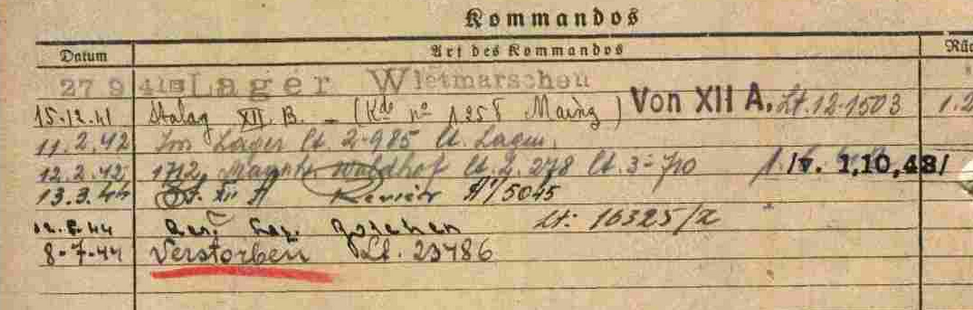 Kommandos
Datum Art des Kommandos Rü
27 9 41 Lager Wietmarschen
15.12.41 Stalag XII. B. - (Kdo no 1258 Mainz) Von XII A. Lt. 12-1503 1.2
11.2.42 Im Lager lt. 2-985 lt. Lager.
12.2.42 1712, Waldhof lt. 2.278 lt. 3-710 /v. 1,10,43/
13.3.44 St. XII A Revier A1/5045
44 Res. Laz. Lt: 16325/
8-7-44 Verstorben Lt. 23786